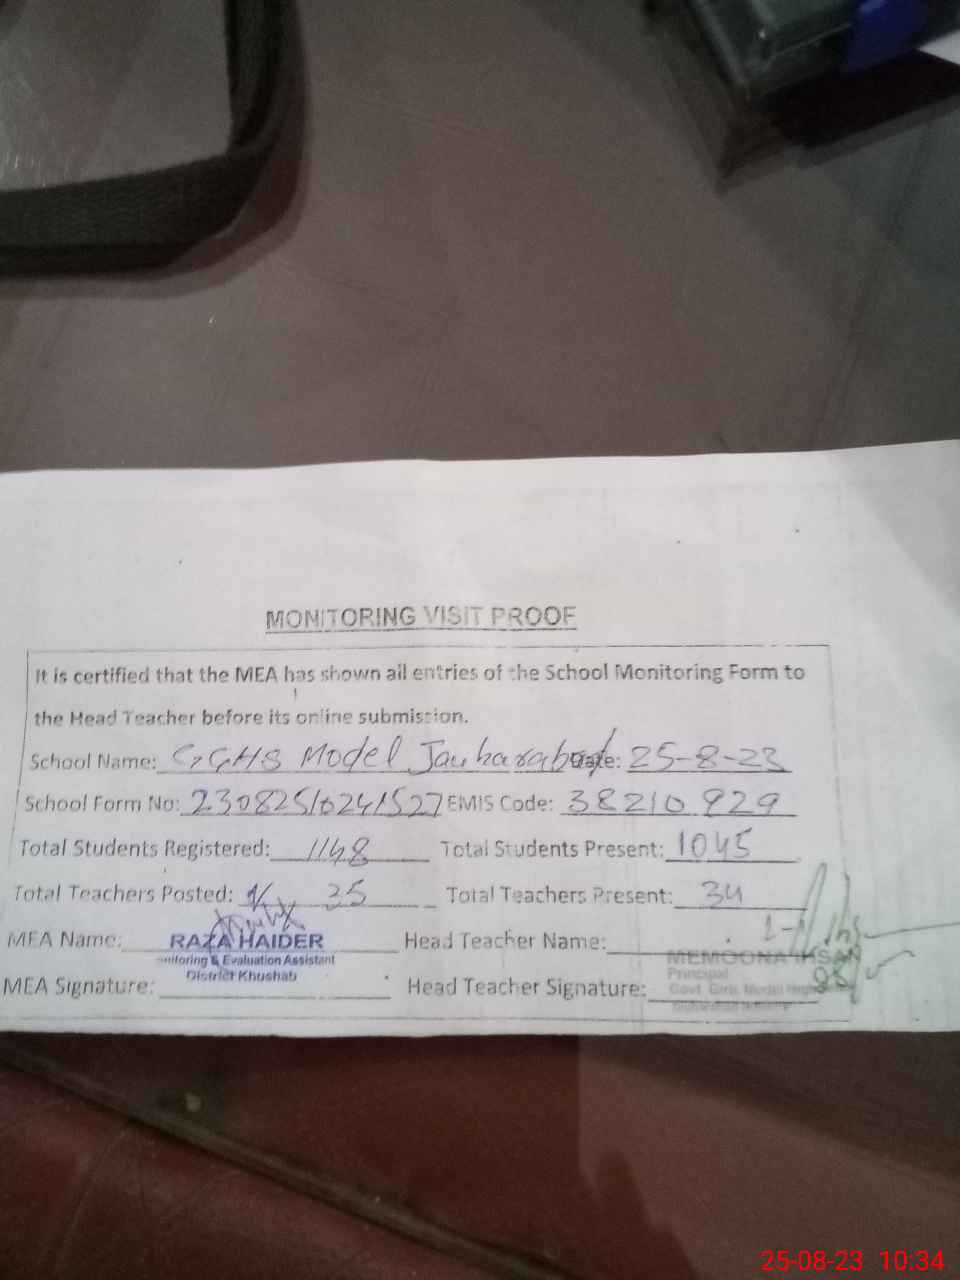 MONITORING VISIT PROOF
It is certified that the MEA has shown all entries of the School Monitoring Form to
the Head Teacher before its online submission.
School Name: GGHS Model Jauharabad Date: 25-8-23
School Form No: 23082510241527 EMIS Code: 38210929
Total Students Registered: 1148 Total Students Present: 1045
Total Teachers Posted: 35 Total Teachers Present: 34
MEA Name: RAZA HAIDER Head Teacher Name:
MEMOONA IHSAN
nitoring & Evaluation Assistant
Principal
District Khushab
Govt Girls Model High
MEA Signature: Head Teacher Signature:
25-08-23 10:34